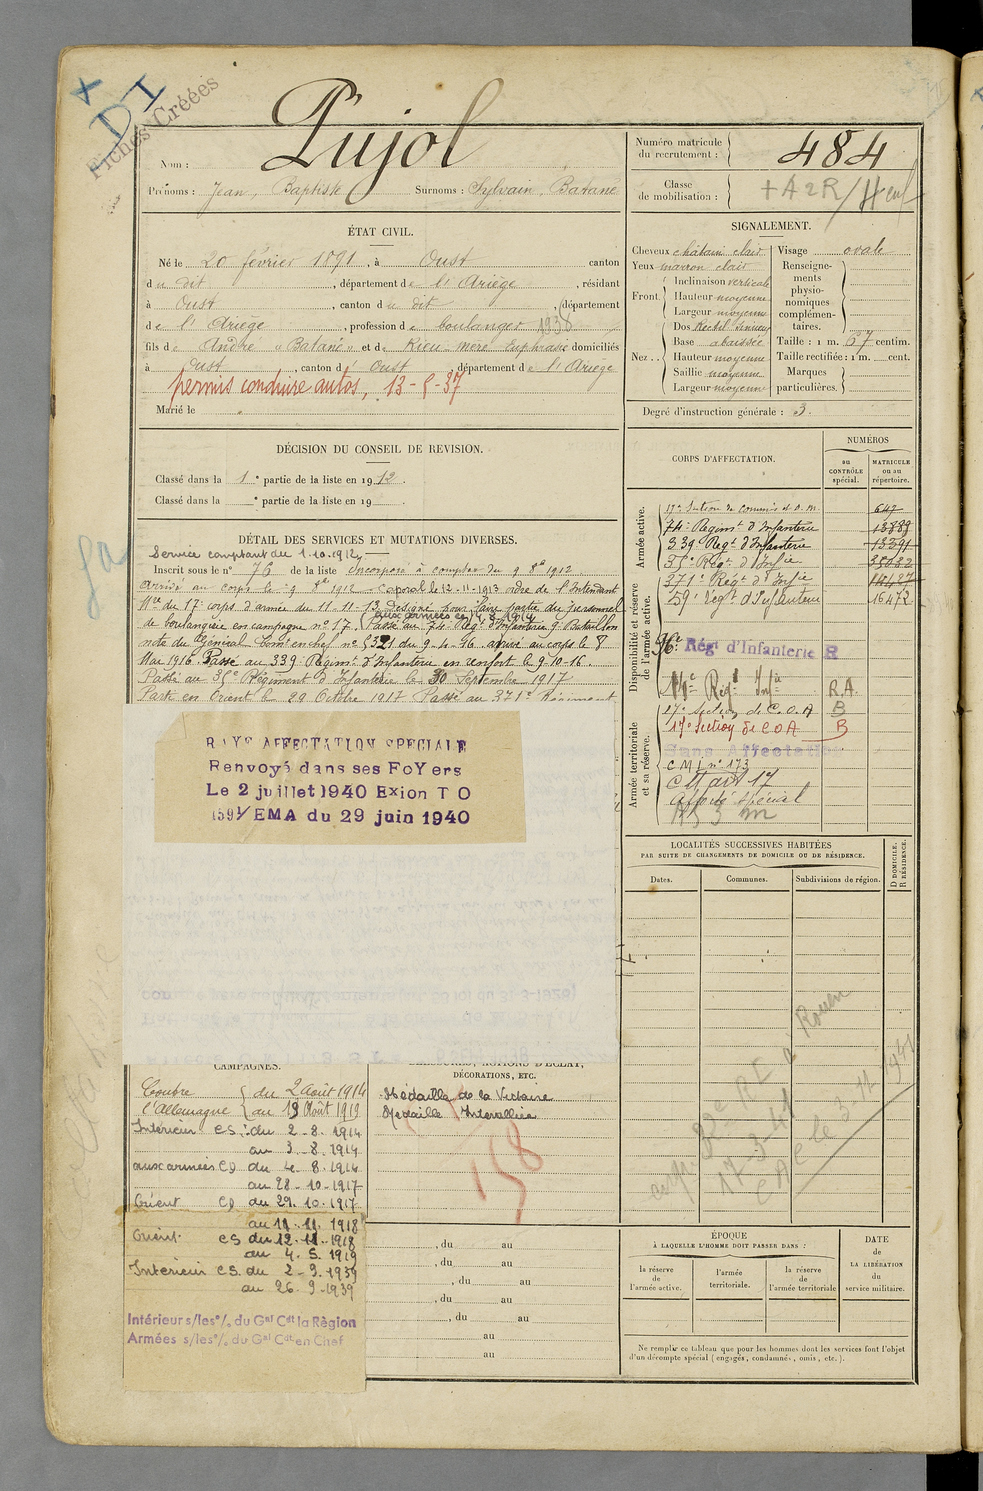 Fiches Créées
DI
Pujol
Nom :
Prénoms : Jean, Baptiste Surnoms : Sylvain, Batané
Numéro matricule
du recrutement : 484
Classe
de mobilisation : + A 2 R/
ÉTAT CIVIL.
Né le 20 février 1891, à Oust canton
du dit, département de l'Ariège, résidant
à Oust, canton du dit, département
de l'Ariège, profession de boulanger 1938
fils de André "Batané" et de Rieu-mère Euphrasie domiciliés
à Oust, canton d'Oust, département de l'Ariège
permis conduire autos, 13-5-37
Marié le
SIGNALEMENT.
Cheveux châtain clair
Yeux marron clair
Front. Inclinaison verticale
Hauteur moyenne
Largeur moyenne
Nez .. Dos Rectil. sinueux
Base abaissée
Hauteur moyenne
Saillie moyenne
Largeur moyenne
Visage ovale
Renseigne-
ments
physio-
nomiques
complémen-
taires.
Taille : 1 m. 67 centim.
Taille rectifiée : 1 m. cent.
Marques
particulières.
Degré d'instruction générale : 3.
DÉCISION DU CONSEIL DE REVISION.
Classé dans la 1e partie de la liste en 1912.
Classé dans la e partie de la liste en 19 .
DÉTAIL DES SERVICES ET MUTATIONS DIVERSES.
Service comptant du 1-10-1912
Inscrit sous le n° 76 de la liste Incorporé à compter du 9 8bre 1912
Arrivé au corps le 9 8bre 1912 Caporal le 12-11-1913 ordre de l'Intendant
Mre du 17e corps d'armée du 11-11-13 Désigné pour faire partie du personnel
de boulangerie en campagne n° 17.
aux armées
Passé au 74e Régt d'Infanterie 9e Bataillon
note du Général Comt en chef n° 5321 du 9-4-16 arrivé au corps le 8
Mai 1916. Passé au 339e Régimt d'Infanterie en renfort le 9-10-16.
Passé au 35e Régiment d'Infanterie le 30 Septembre 1917
Parti en Orient le 29 Octobre 1917 Passé au 371e Régiment
RAYÉ AFFECTATION SPECIALE
Renvoyé dans ses FoYers
Le 2 juillet 1940 Exion T O
1591/EMA du 29 juin 1940
CORPS D'AFFECTATION.
NUMÉROS
au
CONTRÔLE
spécial.
MATRICULE
ou au
répertoire.
Armée active.
Disponibilité et réserve
de l'armée active.
Armée territoriale
et sa réserve.
17e Section de Commis et O. M. 647
74e Régimt d'Infanterie 13889
339 Régt d'Infanterie 13391
35e Régt d'Infie 25082
371e Régt d'Infie 14427
59e Régt d'Infanterie 16472
96e Régt d'Infanterie R
Régt Infie R.A.
17e Section de C.O.A B
17e Section de C O A B
Sans Affectation
C M J n° 173
Affecté Spécial
LOCALITÉS SUCCESSIVES HABITÉES
PAR SUITE DE CHANGEMENTS DE DOMICILE OU DE RÉSIDENCE.
Dates.
Communes.
Subdivisions de région.
D DOMICILE.
R RÉSIDENCE.
Rouen
CAMPAGNES.
Contre du 2 Août 1914
l'Allemagne au 19 Août 1919
Intérieur CS. du 2-8-1914
au 3-8-1914
aux armées CD du 4-8-1914
au 28-10-1917
Orient CD du 29.10.1917
au 11-11-1918
Orient CS du 12-11-1918
au 4.5.1919
Intérieur CS. du 2-9-1939
au 26.9-1939
Intérieur s/les º/₀ du Gal Cdt la Règion
Armées s/les º/₀ du Gal Cdt en Chef
DÉCORATIONS, ETC.
Médaille de la Victoire
Médaille Interalliée
158
, du au
, du au
, du au
, du au
, du au
au
au
ÉPOQUE
À LAQUELLE L'HOMME DOIT PASSER DANS :
la réserve
de
l'armée active.
l'armée
territoriale.
la réserve
de
l'armée territoriale
DATE
de
LA LIBÉRATION
du
service militaire.
Ne remplir ce tableau que pour les hommes dont les services font l'objet
d'un décompte spécial (engagés, condamnés, omis, etc.).